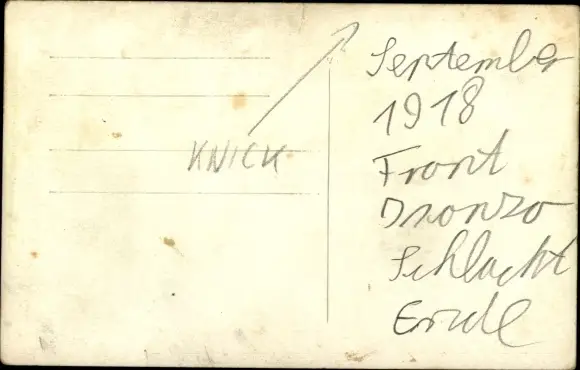 KNICK
September
1918
Front
Isonzo
Schlacht
Ende